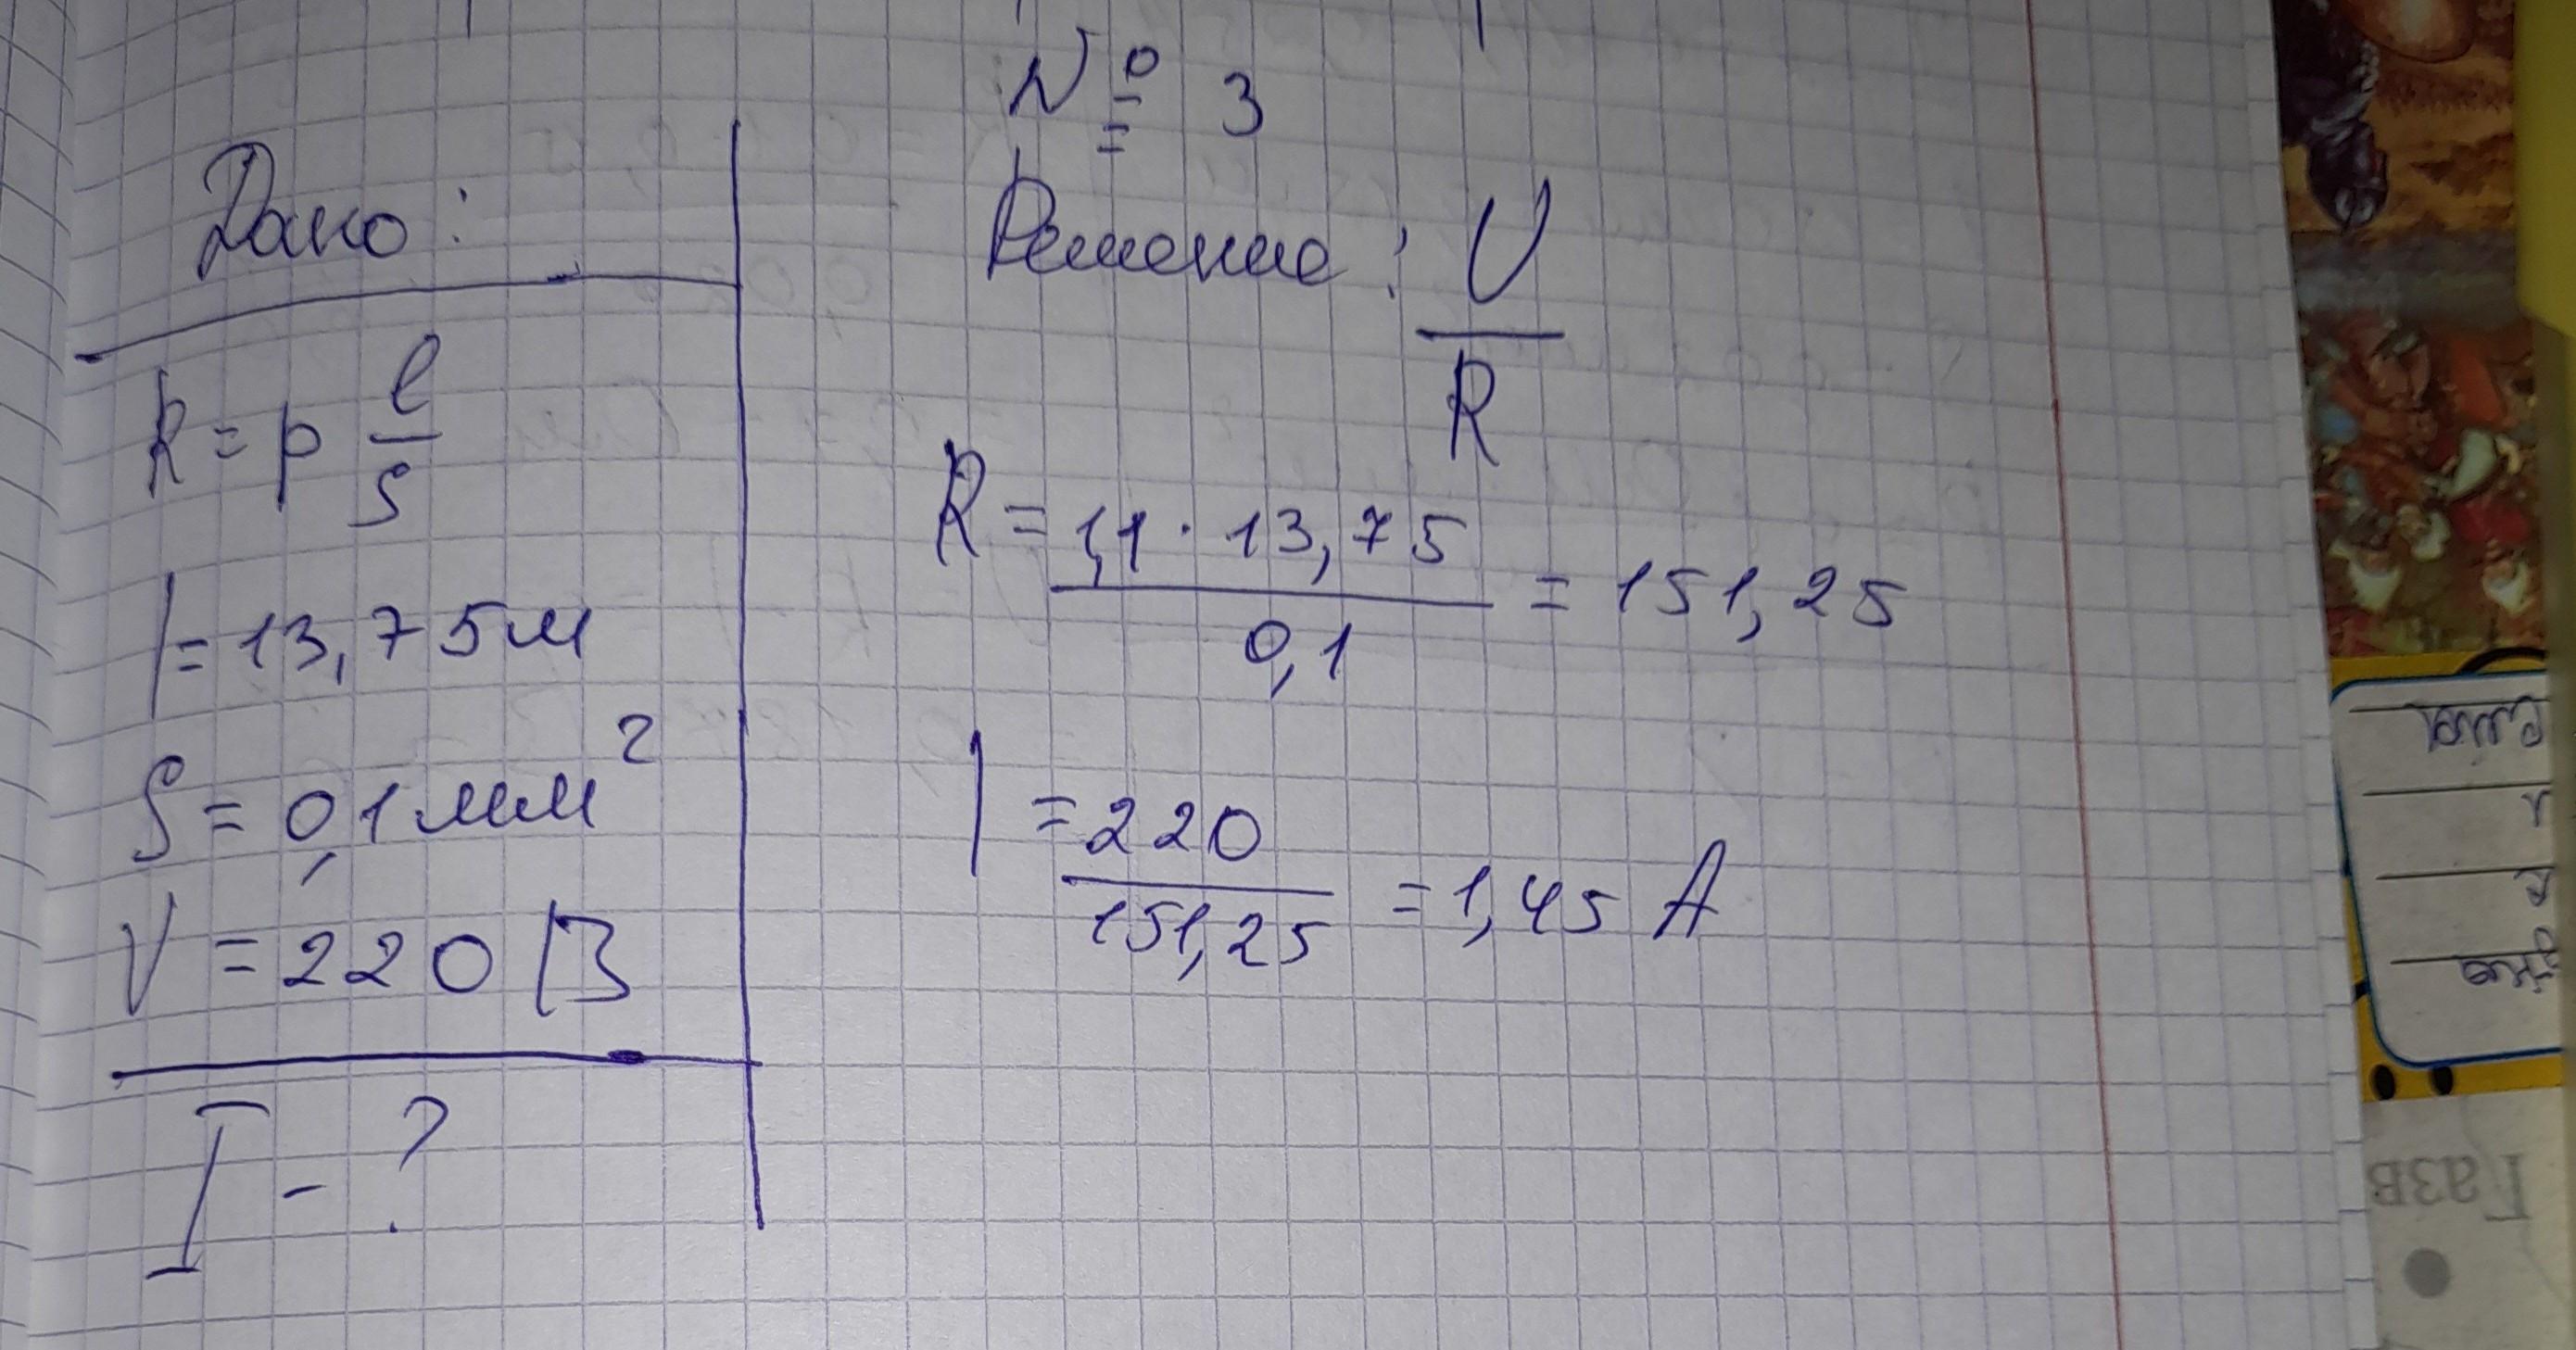 № 3
Дано:
R = p l/S
l = 13,75 м
S = 0,1 мм²
V = 220 В
I - ?
Решение: U/R
R = 1,1 · 13,75 / 0,1 = 151,25
I = 220 / 151,25 = 1,45 А
Газв